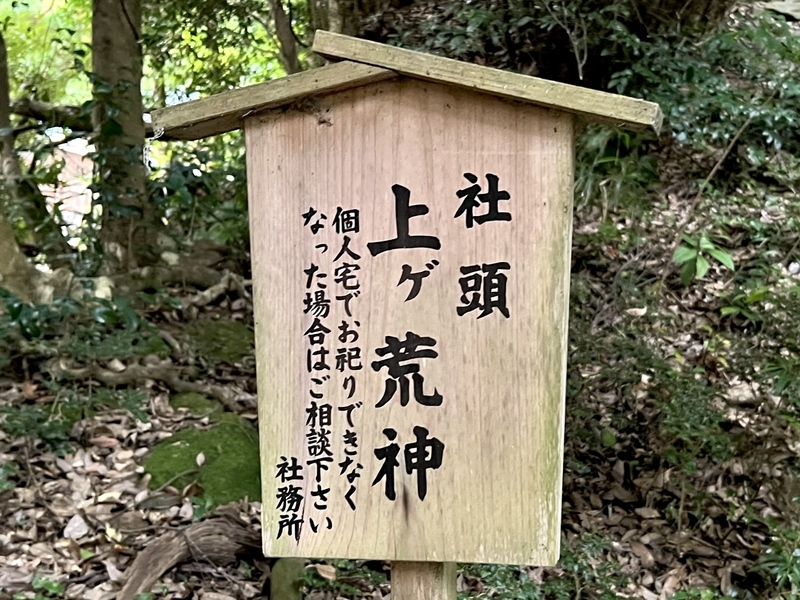 社頭
上ゲ荒神
個人宅でお祀りできなく
なった場合はご相談下さい
社務所